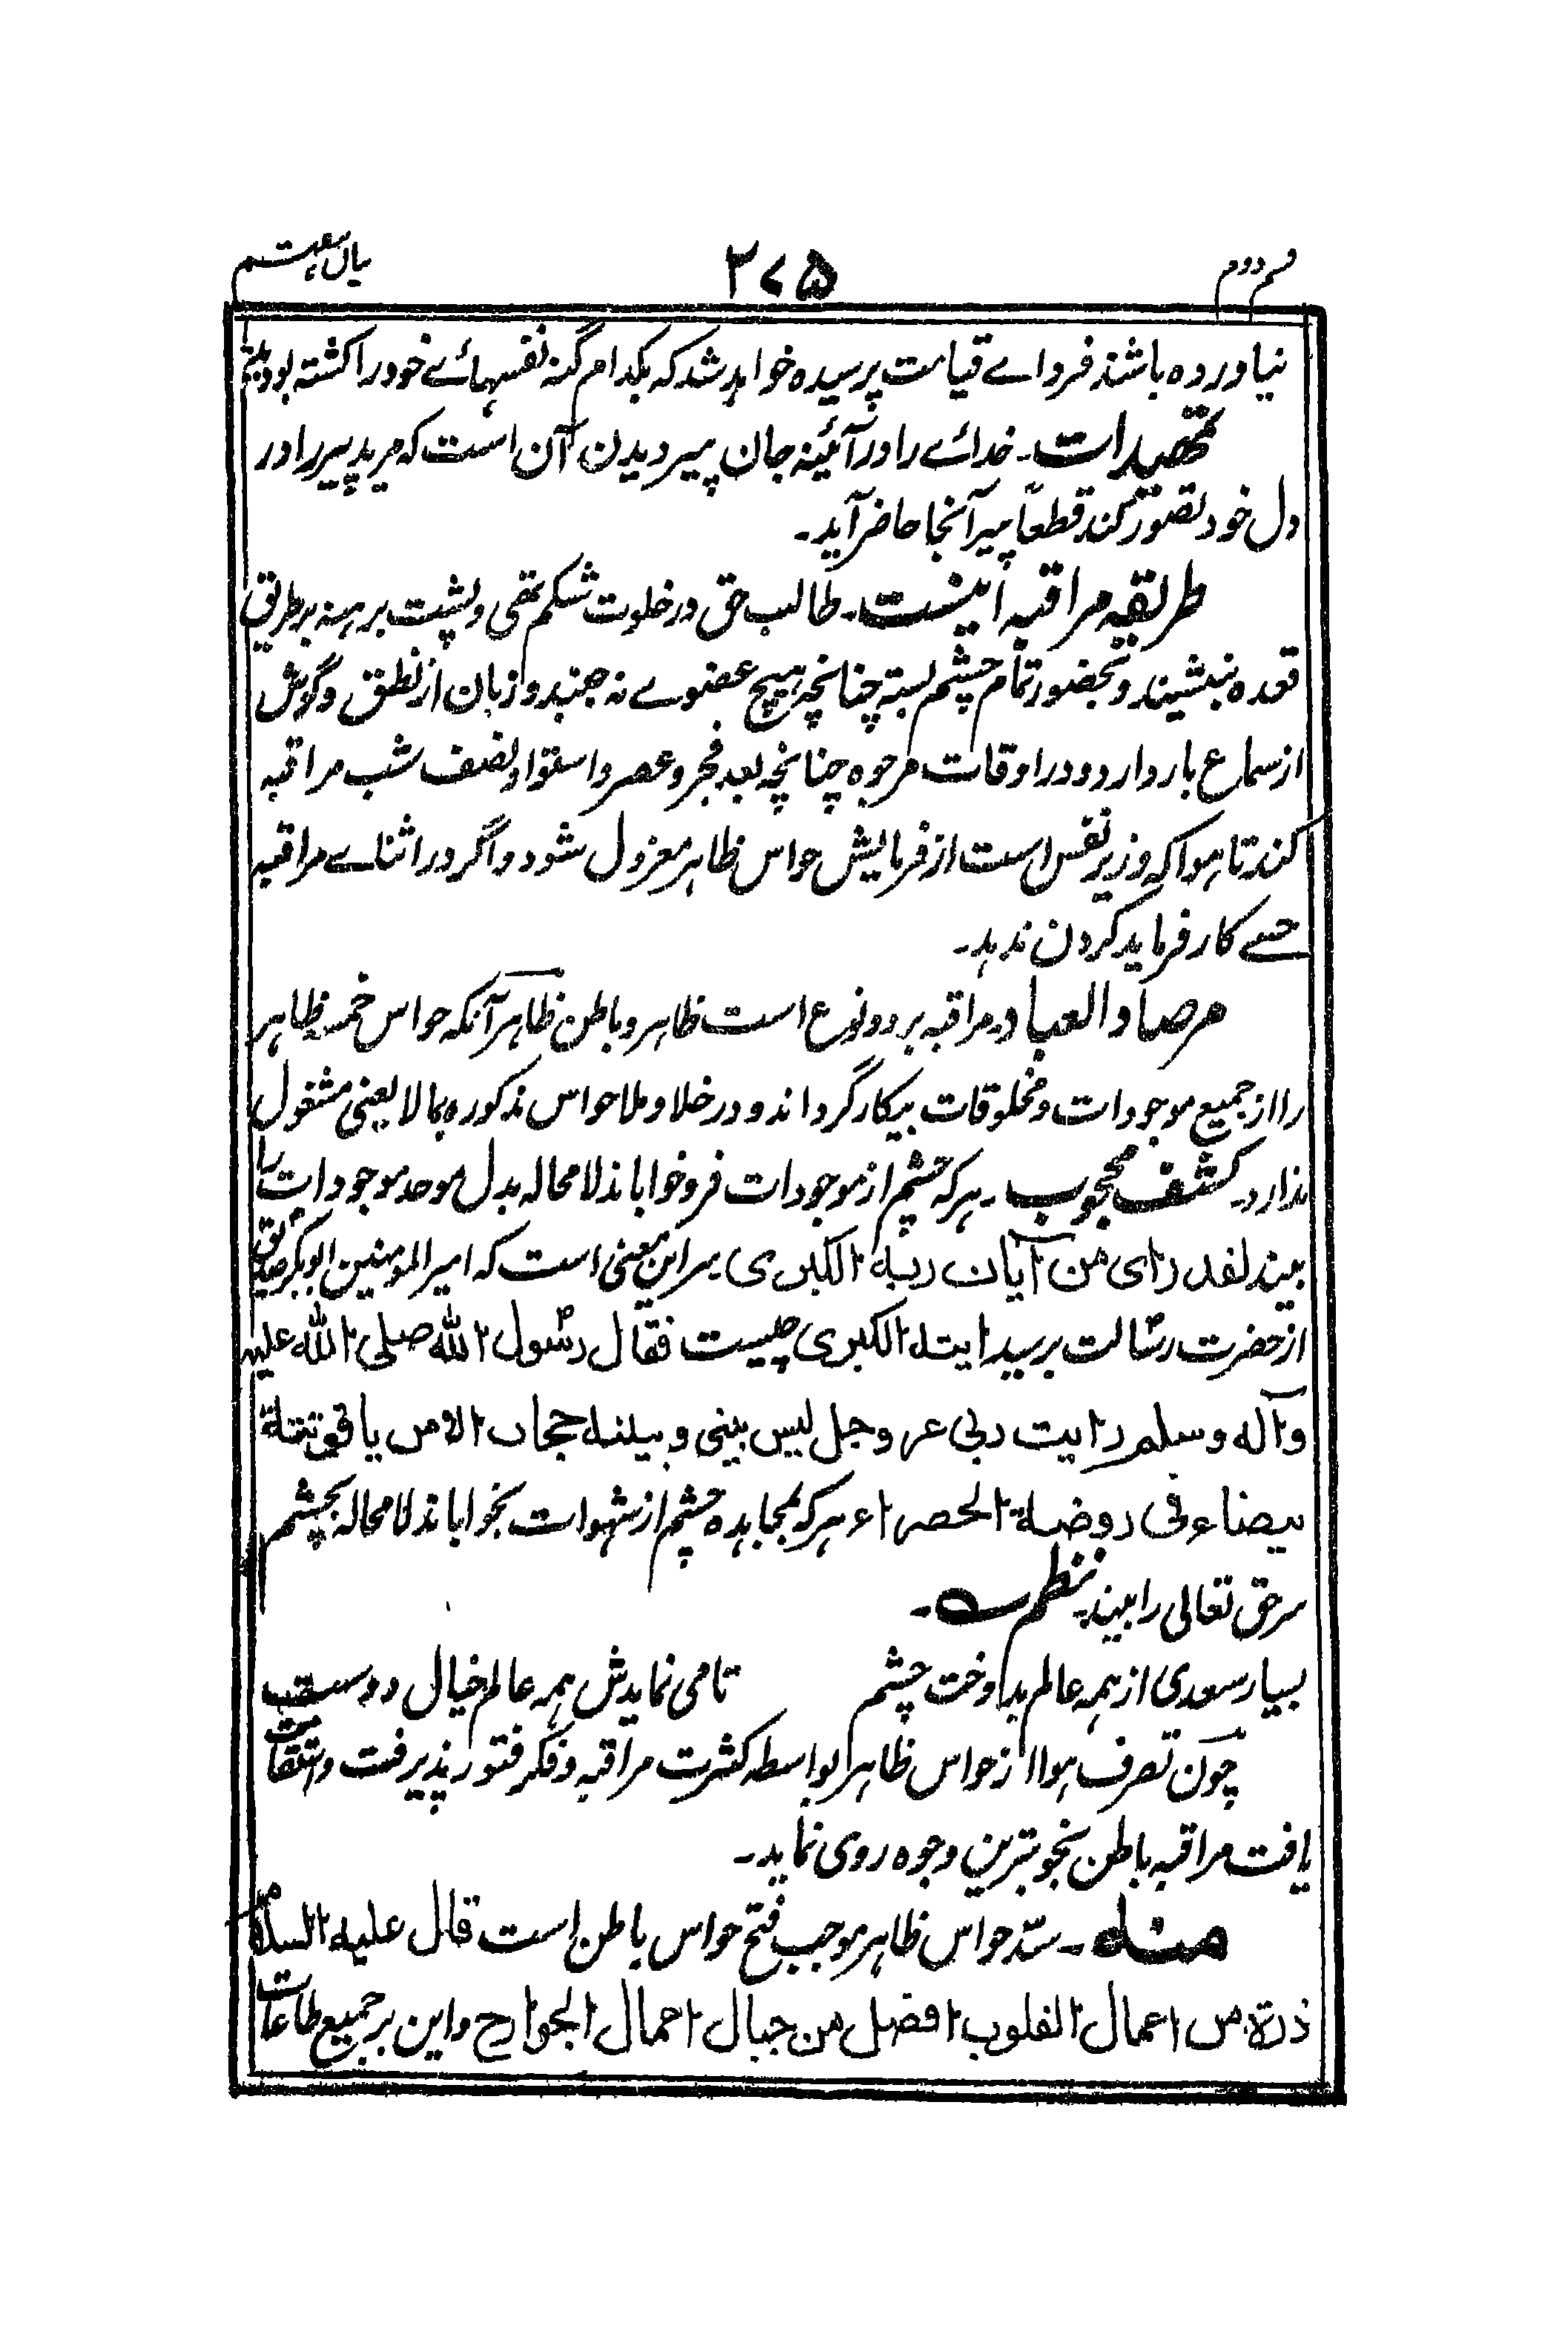 قسم دوم ۲۷۵ بیان بستم
نیاورده باشند فردائے قیامت پرسیده خواهد شد که بکدام گنه نفسهائے خود را کشته بودید
تمهیدات۔ خدائے را در آئینه جان پیر دیدن آن است که مرید پیر را در
دل خود تصور کند قطعاً پیر آنجا حاضر آید۔
طریقه مراقبه اینست۔ طالب حق در خلوت شکم تهی و پشت برهنه بر طریق
قعده بنشیند و بحضور تمام چشم بسته چنانچه هیچ عضوے نه جنبد و زبان از نطق و گوش
از سماع باز دارد و در اوقات مرجوه چنانچه بعد فجر و عصر و استوا و نصف شب مراقبه
کند تا هوا که وزیر نفس است از فرمایش حواس ظاهر معزول شود و اگر در اثنائے مراقبه
حسے کار فرماید کردن ندهد۔
مرصاد العباد۔ مراقبه بر دو نوع است ظاهر و باطن ظاهر آنکه حواس خمسه ظاهر
را از جمیع موجودات و مخلوقات بیکار گرداند و در خلا و ملا حواس مذکوره بمالا یعنی مشغول
ندارد۔ کشف محجوب۔ هر که چشم از موجودات فروخواباند لا محاله بدل موحد موجودات را
بیند لقد رای من آیات ربه الکبری سر این معنی است که امیر المومنین ابوبکر صدیق
از حضرت رسالت پرسید ایته الکبری چیست فقال رسول الله صلی الله علیه
وآله وسلم رایت ربی عز وجل لیس بینی وبینه حجاب الا من یاقوتة
بیضاء فی روضة الخضراء هر که بمجاهده چشم از شهوات بخواباند لا محاله بچشم
سر حق تعالی را بیند۔ نظم۔
بسیار سعدی از همه عالم بدوخت چشم تا می نمایدش همه عالم خیال دوست
چون تصرف هوا از حواس ظاهر بواسطه کثرت مراقبه و فکر فتور پذیرفت و استقامت
یافت مراقبه باطن بخوبترین وجوه روی نماید۔
منه۔ سدّ حواس ظاهر موجب فتح حواس باطن است قال علیه السلام
ذرة من اعمال القلوب افضل من جبال اعمال الجوارح و این بر جمیع طاعات